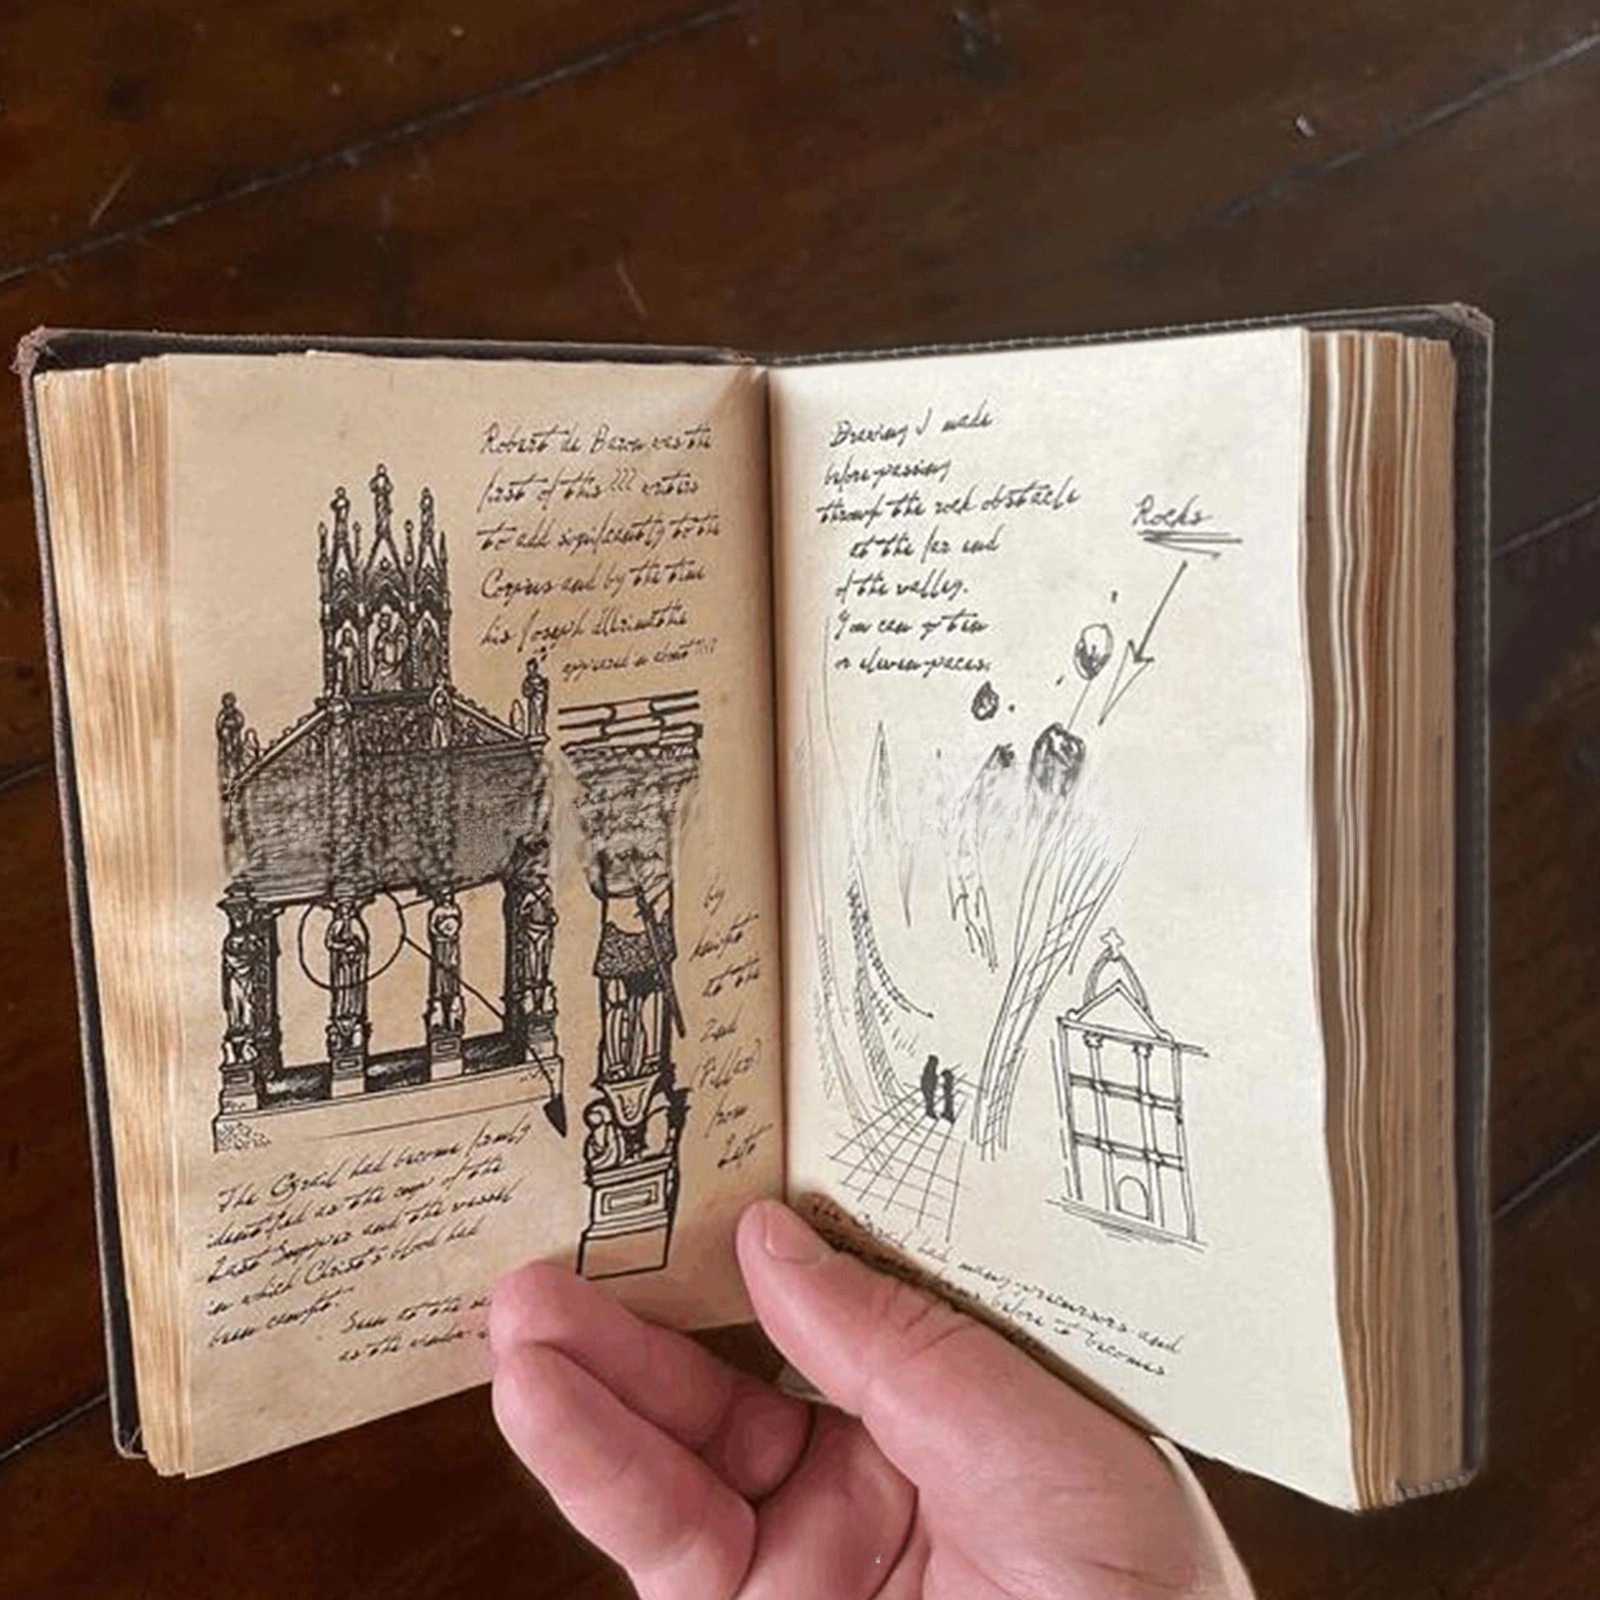 Robert de Baron was the
first of this ??? writers
to add significantly to the
Corpus and by the time
his Joseph d'Arimathe
appeared in about
by
knight
to the
2nd
(Pillar)
from
Left
The Grail had become firmly
identified as the cup of the
Last Supper and the vessel
in which Christ's blood had
been caught.
Seen to the
as the
Drawing I made
before passing
through the rock obstacle
at the far end
of the valley.
You can go ten
or eleven paces.
Rocks
The Grail had many precursors and
before it becomes